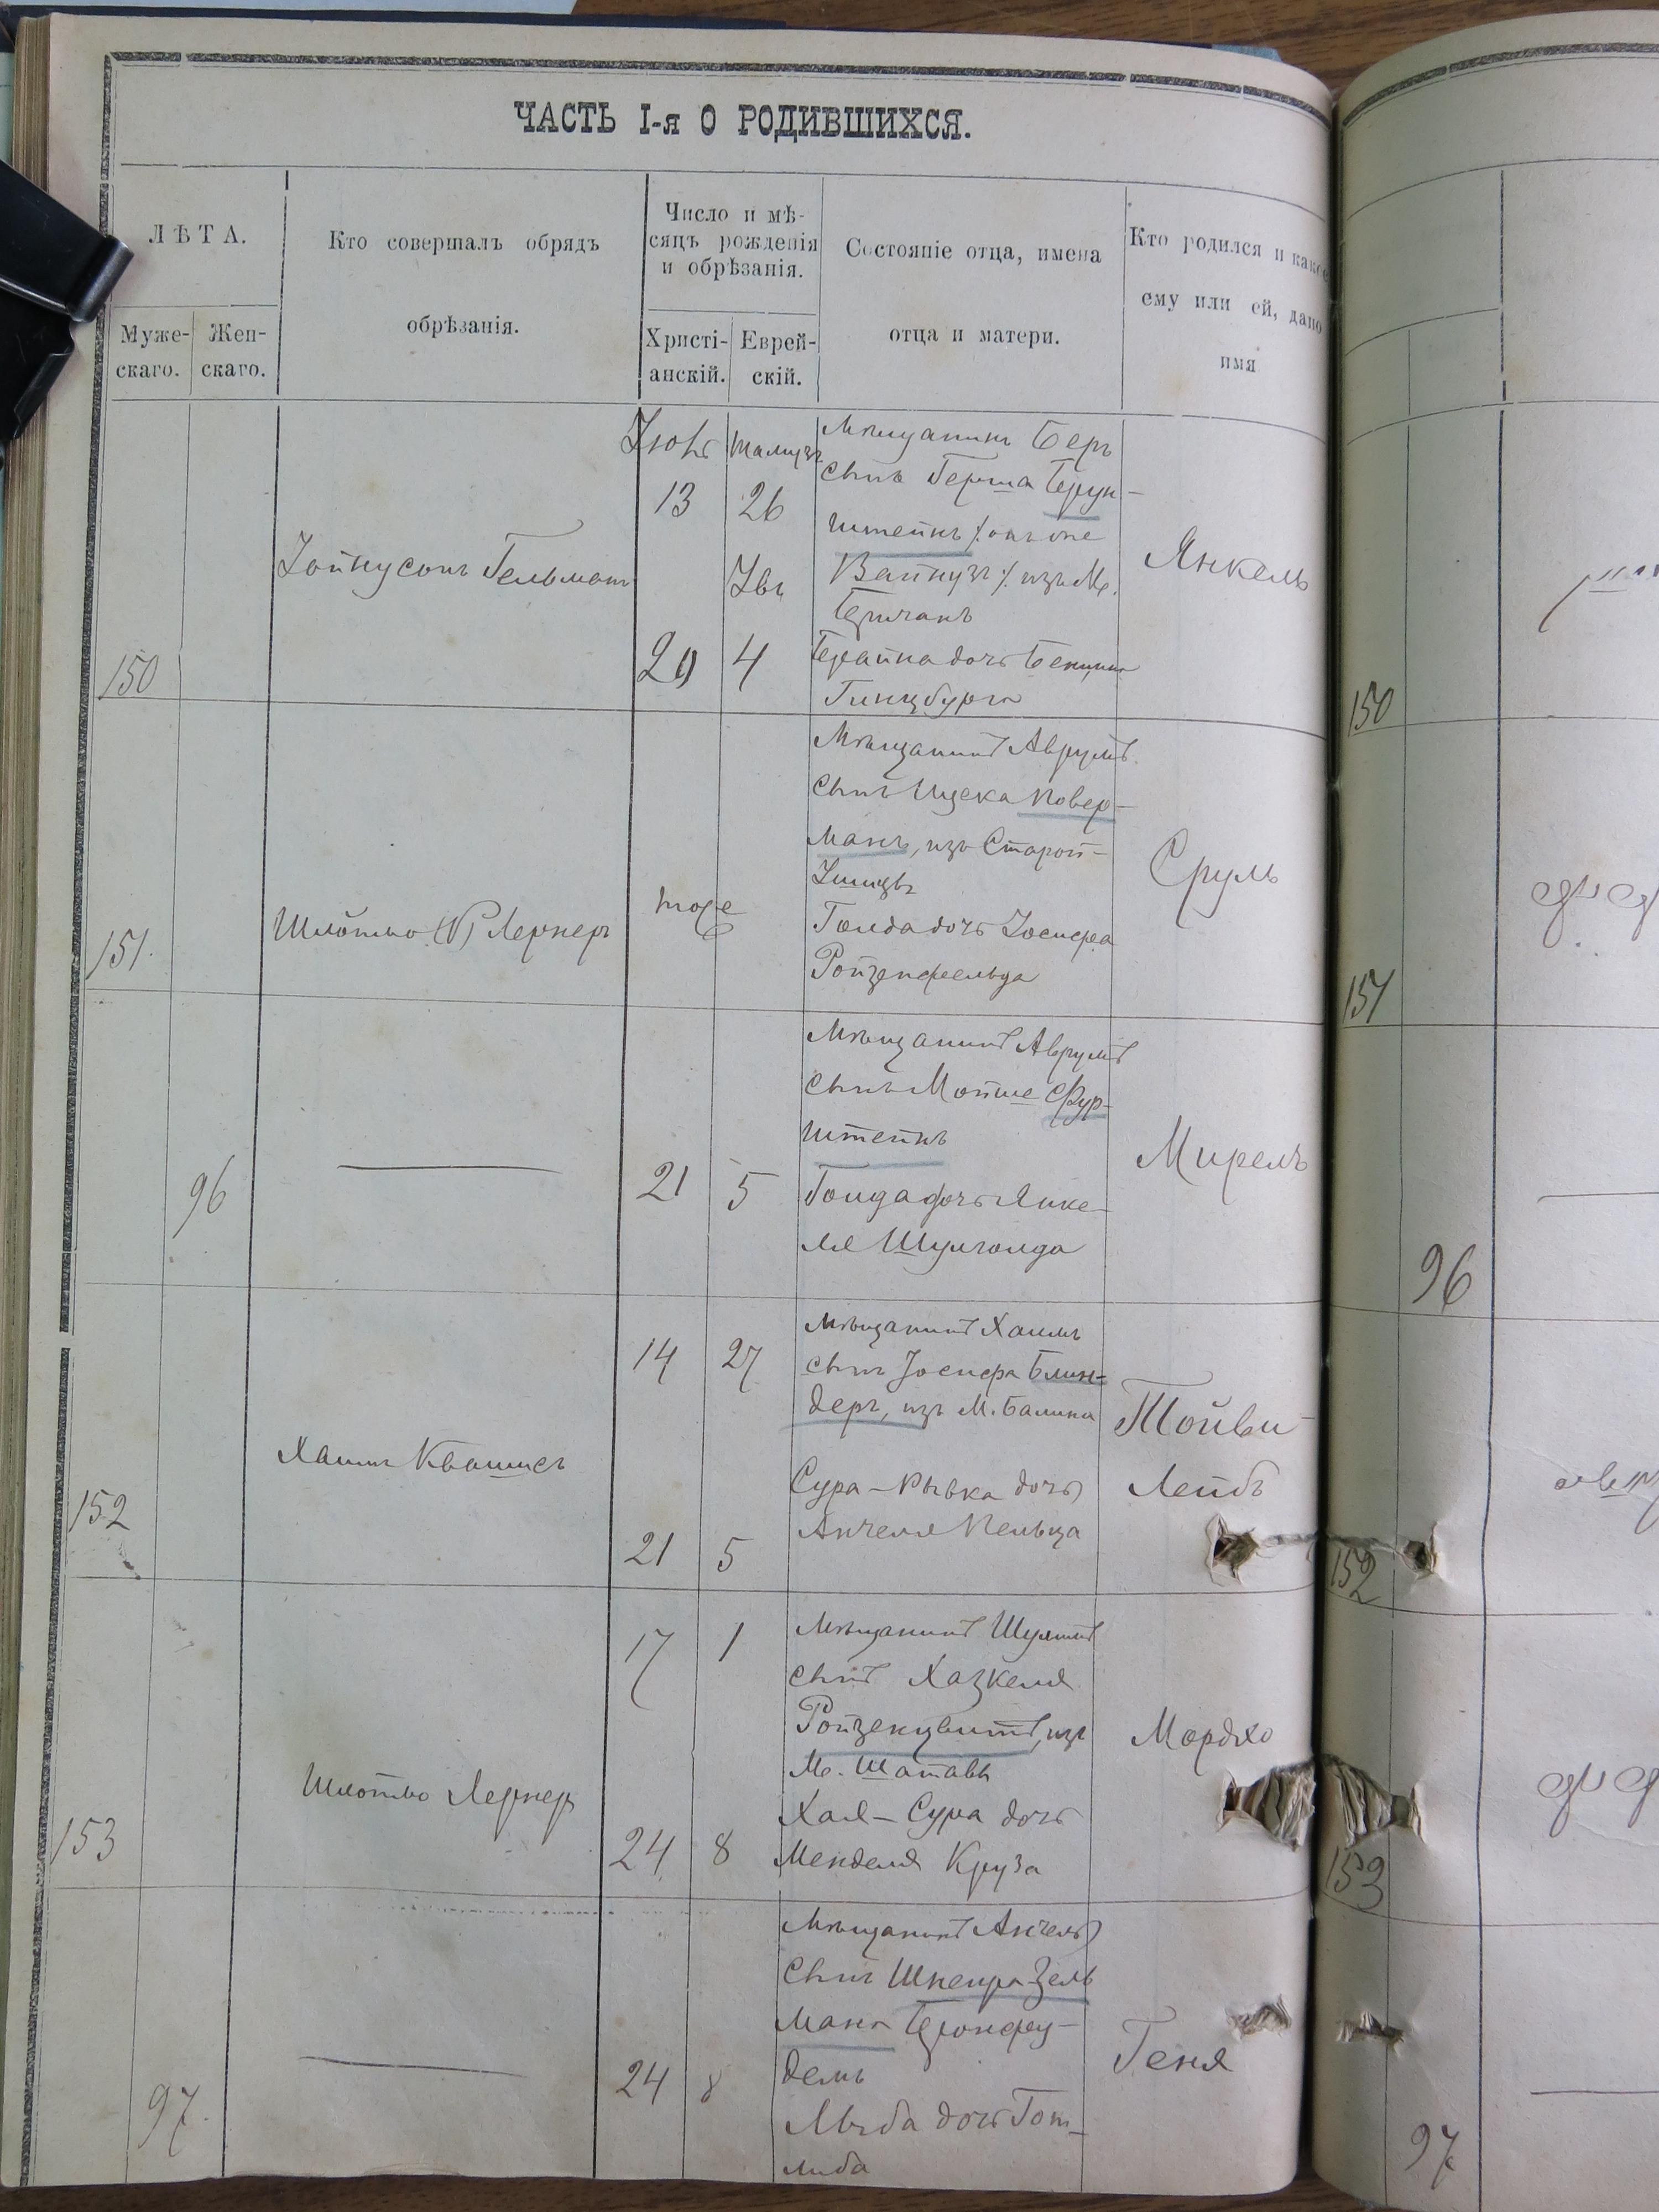 ЧАСТЬ I-я О РОДИВШИХСЯ.
ЛѢТА.
Муже-
скаго.
Жен-
скаго.
Кто совершалъ обрядъ
обрѣзанія.
Число и мѣ-
сяцъ рожденія
и обрѣзанія.
Христі-
анскій.
Еврей-
скій.
Состояніе отца, имена
отца и матери.
Кто родился и какое
ему или ей, дано
имя
150
Гельманъ
13
26
20
4
Мѣщанинъ Беръ
сынъ Герша Брун-
штейнъ
изъ М.
Бричанъ
Брайна дочь
Гинцбурга
Янкель
150
151.
Лернеръ
тоже
Мѣщанинъ Аврумъ
сынъ Ицека Повер-
манъ, изъ Старой-
Ушицы
Голда дочь Іосифа
Ройзенфельда
Сруль
151
96
21
5
Мѣщанинъ Аврумъ
сынъ Мойше Фур-
штейнъ
Голда дочь Янке-
ля
Мирель
96
152
Хаимъ
14
27
21
5
Мѣщанинъ Хаимъ
сынъ Іосифа Блин-
деръ, изъ М. Балина
Сура-Рывка дочь
Анчеля Пельца
Тойви
Лейбъ
152
153
Шлойме Лернеръ
17
1
24
8
Мѣщанинъ
сынъ Хазкеля
Ройзенцвитъ, изъ
М. Шатавы
Хая-Сура дочь
Менделя Круза
Мордхо
153
97.
24
8
Мѣщанинъ Анчель
сынъ Шнеира Зель
мана Бронфу-
демъ
Люба дочь Гот-
либа
Геня
97.